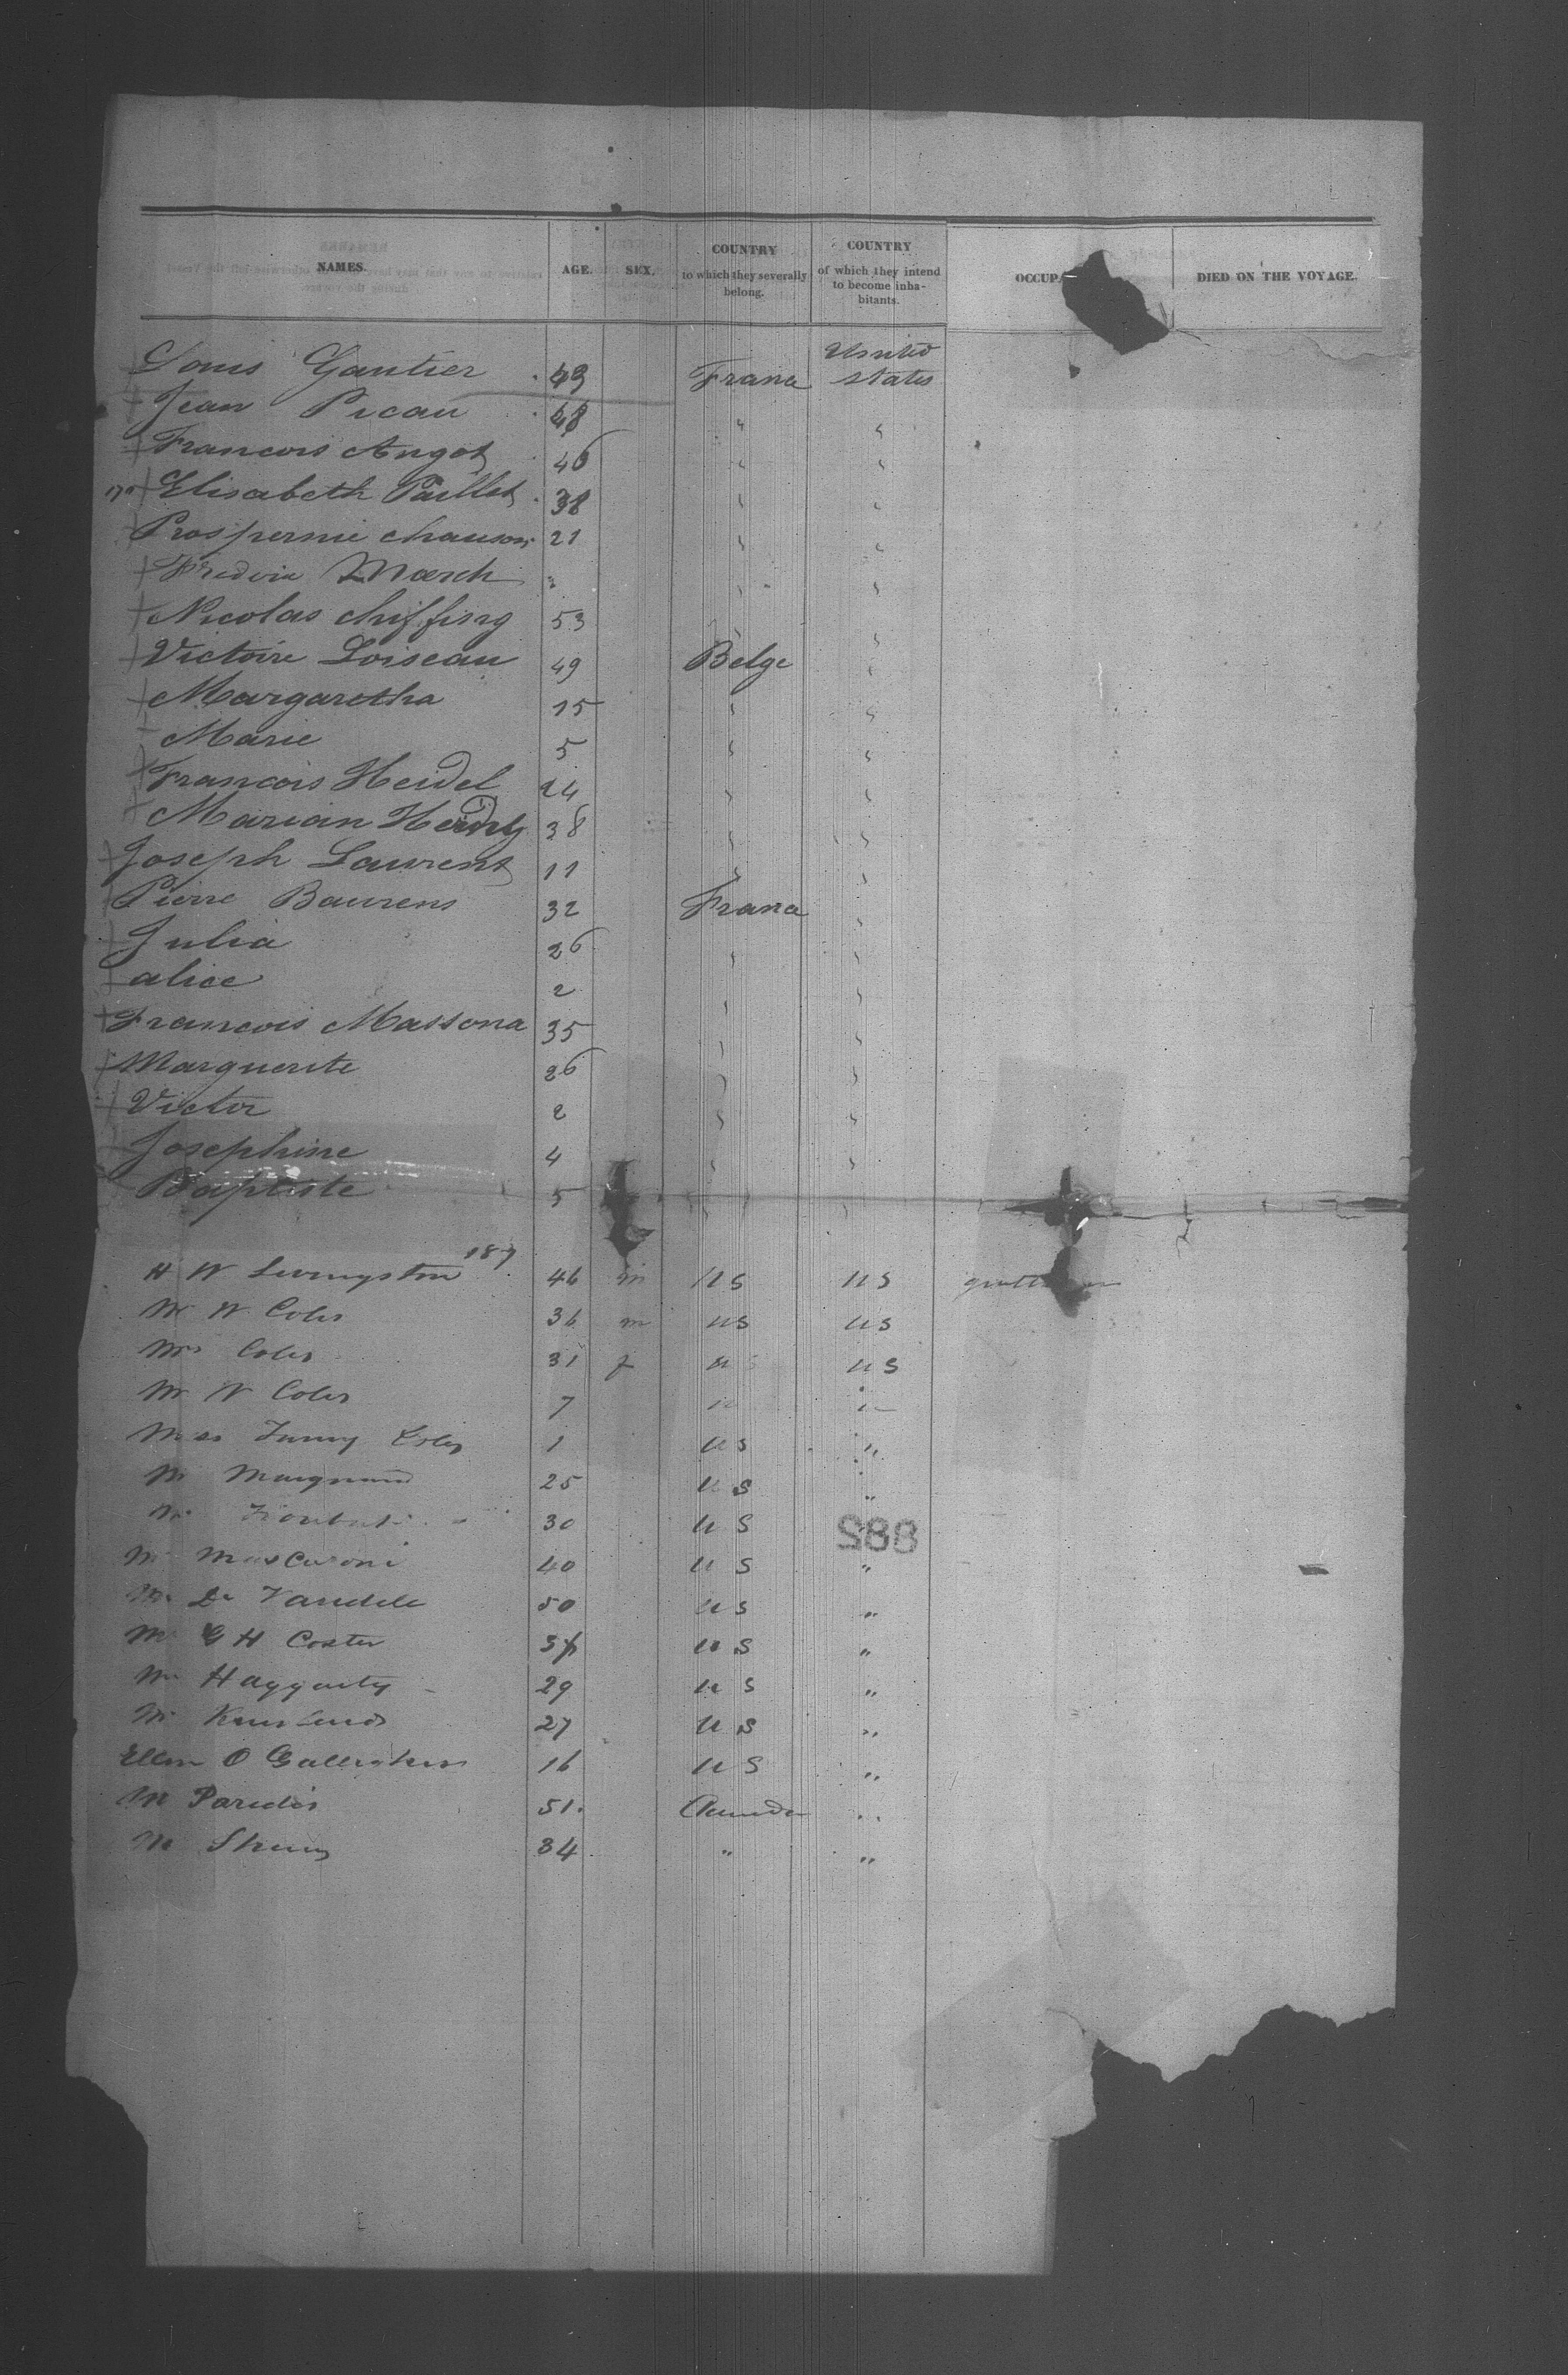 NAMES. AGE. SEX. COUNTRY to which they severally belong. COUNTRY of which they intend to become inhabitants. OCCUPA DIED ON THE VOYAGE.
United
Louis Gautier 43 France States
Jean Picau 48 " "
Francois Angot 46 " "
Elisabeth Paillet 38 " "
Prospernie chauson 21 " "
March " " "
Nicolas chiffing 53 " "
Victoire Loiseau 49 Belge "
Margaretha 15 " "
Marie 5 " "
Francois Heidel 24 " "
Marian 38 " "
Joseph Laurent 11 " "
Pierre Baurens 32 France "
Julia 26 " "
alice 2 " "
Francois Massona 35 " "
Marguerite 26 " "
Victor 2 " "
Josephine 4 " "
Baptiste 5 " "
187
H W Livingston 46 m US US
W W Coles 36 m US US
Mrs Coles 31 f US US
W Coles 7 " "
Miss Fanny Coles 1 US "
M 25 US "
M 30 US "
882
M Mascaroni 40 US "
M De 50 US "
M G H Coster US "
M Haggarty 29 US "
M 27 US "
Ellen O Gallagher 16 US "
M Paredis 51 "
M 34 " "